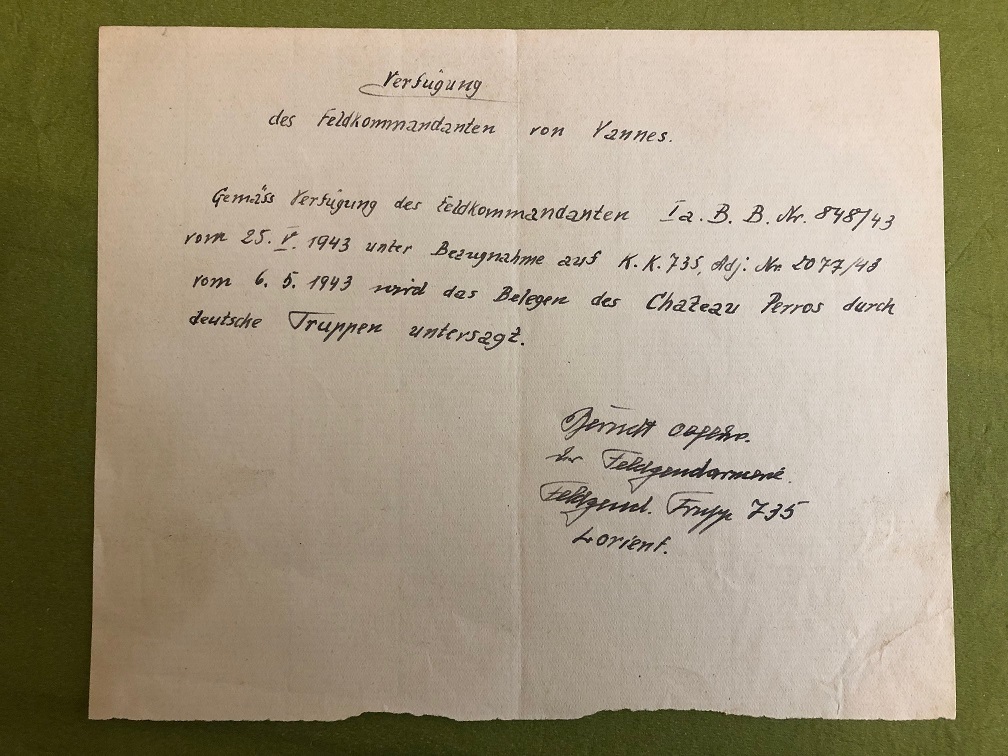 Verfügung
des Feldkommandanten von Vannes.
Gemäss Verfügung des Feldkommandanten Ia. B. B. Nr. 848/43
vom 25. V. 1943 unter Bezugnahme auf K.K. 735, Adj. Nr. 2077/43
vom 6. 5. 1943 wird das Belegen des Chateau Perros durch
deutsche Truppen untersagt.
der Feldgendarmerie.
Feldgend. Trupp 735
Lorient.